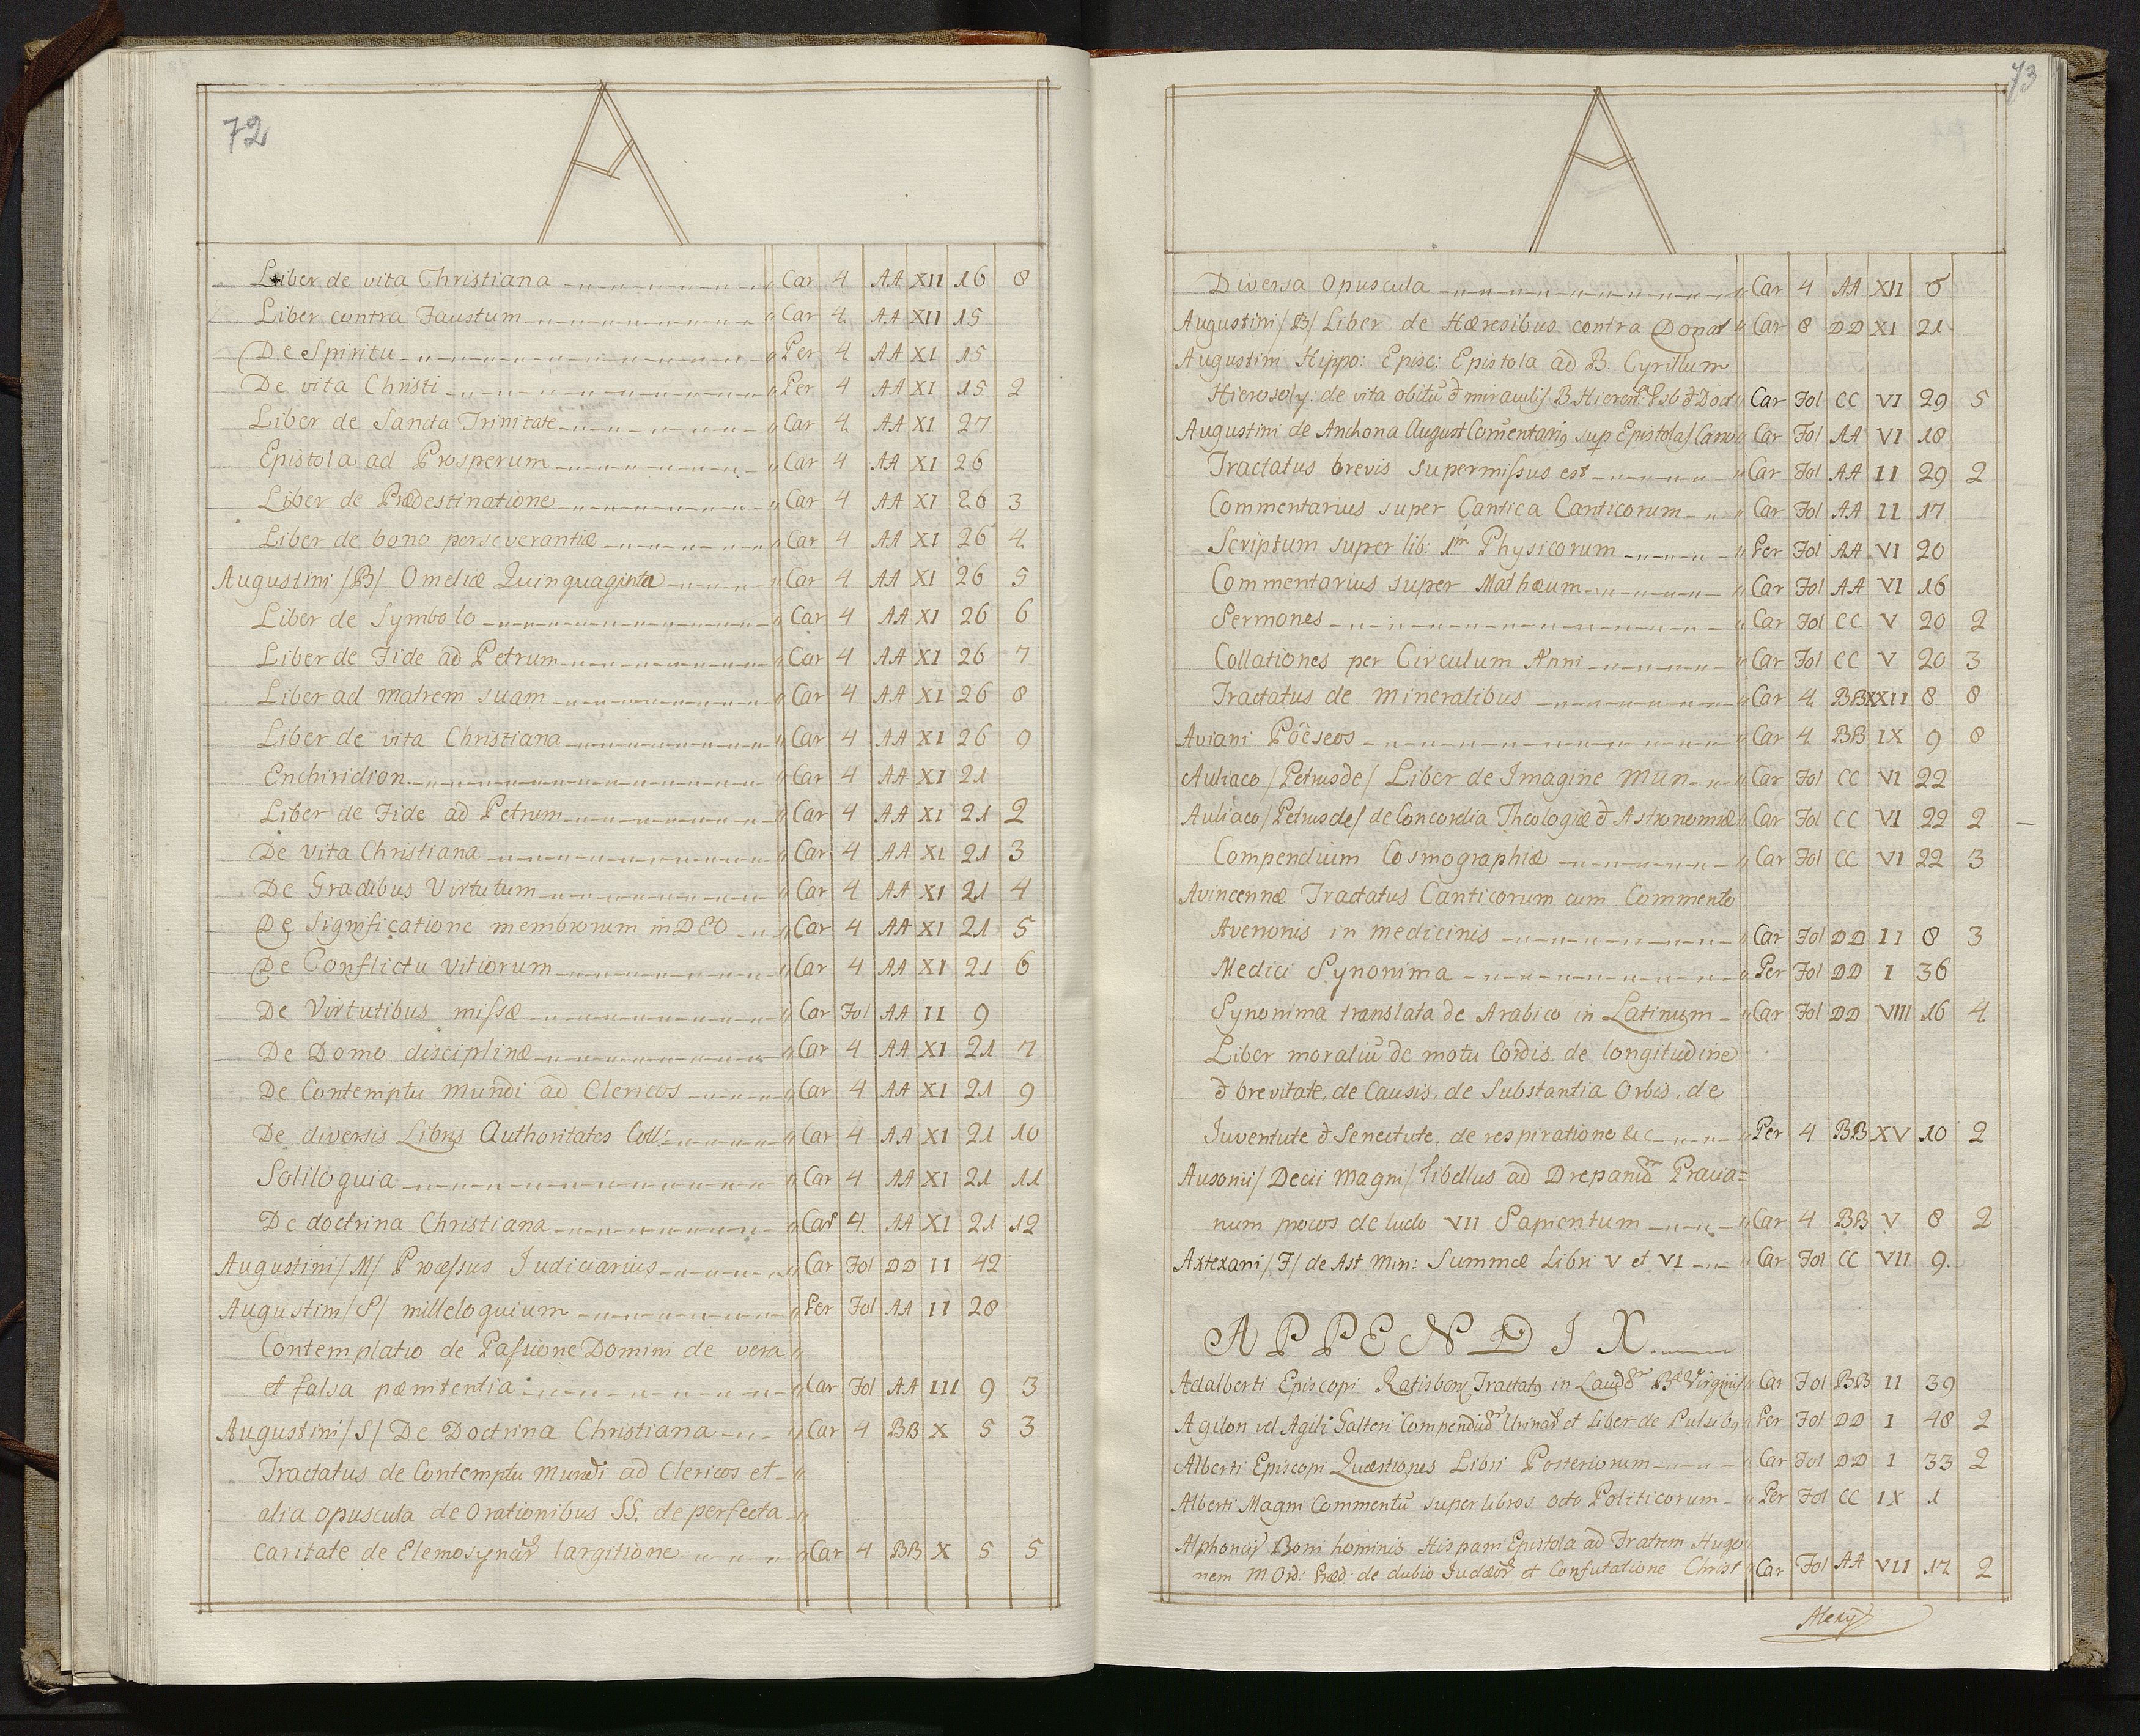 72
A
Liber de vita Christiana Car 4 AA XII 16 8
Liber contra Faustum Car 4 AA XII 15
De Spiritu Per 4 AA XI 15
De vita Christi Per 4 AA XI 15 2
Liber de Sancta Trinitate Car 4 AA XI 27
Epistola ad Prosperum Car 4 AA XI 26
Liber de Prædestinatione Car 4 AA XI 26 3
Liber de bono perseverantiæ Car 4 AA XI 26 4
Augustini /B/ Omeliæ Quinquaginta Car 4 AA XI 26 5
Liber de Symbolo Car 4 AA XI 26 6
Liber de Fide ad Petrum Car 4 AA XI 26 7
Liber ad matrem suam Car 4 AA XI 26 8
Liber de vita Christiana Car 4 AA XI 26 9
Enchiridion Car 4 AA XI 21
Liber de Fide ad Petrum Car 4 AA XI 21 2
De Vita Christiana Car 4 AA XI 21 3
De Gradibus Virtutum Car 4 AA XI 21 4
De Significatione membrorum in DEO Car 4 AA XI 21 5
De Conflictu vitiorum Car 4 AA XI 21 6
De Virtutibus missæ Car Fol AA II 9
De Domo disciplinæ Car 4 AA XI 21 7
De Contemptu mundi ad Clericos Car 4 AA XI 21 9
De diversis Libris Authoritates Coll: Car 4 AA XI 21 10
Soliloquia Car 4 AA XI 21 11
De doctrina Christiana Car 4 AA XI 21 12
Augustini /M/ Processus Judiciarius Car Fol DD II 42
Augustini /S/ milleloquium Per Fol AA II 28
Contemplatio de Passione Domini de vera
et falsa pœnitentia Car Fol AA III 9 3
Augustini /S/ De Doctrina Christiana Car 4 BB X 5 3
Tractatus de Contemptu mundi ad Clericos et
alia opuscula de Orationibus SS. de perfecta
caritate de Elemosynar largitione Car 4 BB X 5 5
73
A
Diversa Opuscula Car 4 AA XII 6
Augustini /B/ Liber de Hæresibus contra Donat Car 8 DD XI 21
Augustini Hippo: Episc: Epistola ad B. Cyrillum
Hierosoly: de vita obitu & miraculis B. Hieron: & Doct Car Fol CC VI 29 5
Augustini de Anchona August Comentari sup Epistolas Cano Car Fol AA VI 18
Tractatus brevis super missus est Car Fol AA II 29 2
Commentarius super Cantica Canticorum Car Fol AA II 17
Scriptum super lib: 1m Physicorum Per Fol AA VI 20
Commentarius super Mathæum Car Fol AA VI 16
Sermones Car Fol CC V 20 2
Collationes per Circulum Anni Car Fol CC V 20 3
Tractatus de mineralibus Car 4 BB XXII 8 8
Aviani Pöëseos Car 4 BB IX 9 8
Auliaco /Petrus de/ Liber de Imagine Mun Car Fol CC VI 22
Auliaco /Petrus de/ de Concordia Theologiæ & Astronomiæ Car Fol CC VI 22 2
Compendium Cosmographiæ Car Fol CC VI 22 3
Avincennæ Tractatus Canticorum cum Commento
Avenonis in medicinis Car Fol DD II 8 3
Medici Synonima Per Fol DD I 36
Synonima translata de Arabico in Latinum Car Fol DD VIII 16 4
Liber moraliũ de motu Cordis de longitudine
& brevitate, de Causis, de Substantia Orbis, de
Iuventute & Senectute, de respiratione &c Per 4 BB XV 10 2
Ausonii /Decii Magni/ libellus ad Drepaniũ Praua=
num procos de ludo VII Sapientum Car 4 BB V 8 2
Axtexani /F/ de Ast Min: Summæ Libri V et VI Car Fol CC VII 9.
APPENDIX
Adalberti Episcopi Ratisbon Tractat in Laud Bæ Virginis Car Fol BB II 39
Agilon vel Agili Galteri Compendiũ Urinar et Liber de Pulsib Per Fol DD I 48 2
Alberti Episcopi Quæstiones Libri Posteriorum Car Fol DD I 33 2
Alberti Magni Commentũ super libros octo Politicorum Per Fol CC IX 1
Alphonsij Boni hominis Hispani Epistola ad Fratrem Hugo
nem M. Ord: Præd: de dubio Iudæor et Confutatione Christ Car Fol AA VII 17 2
Alexy